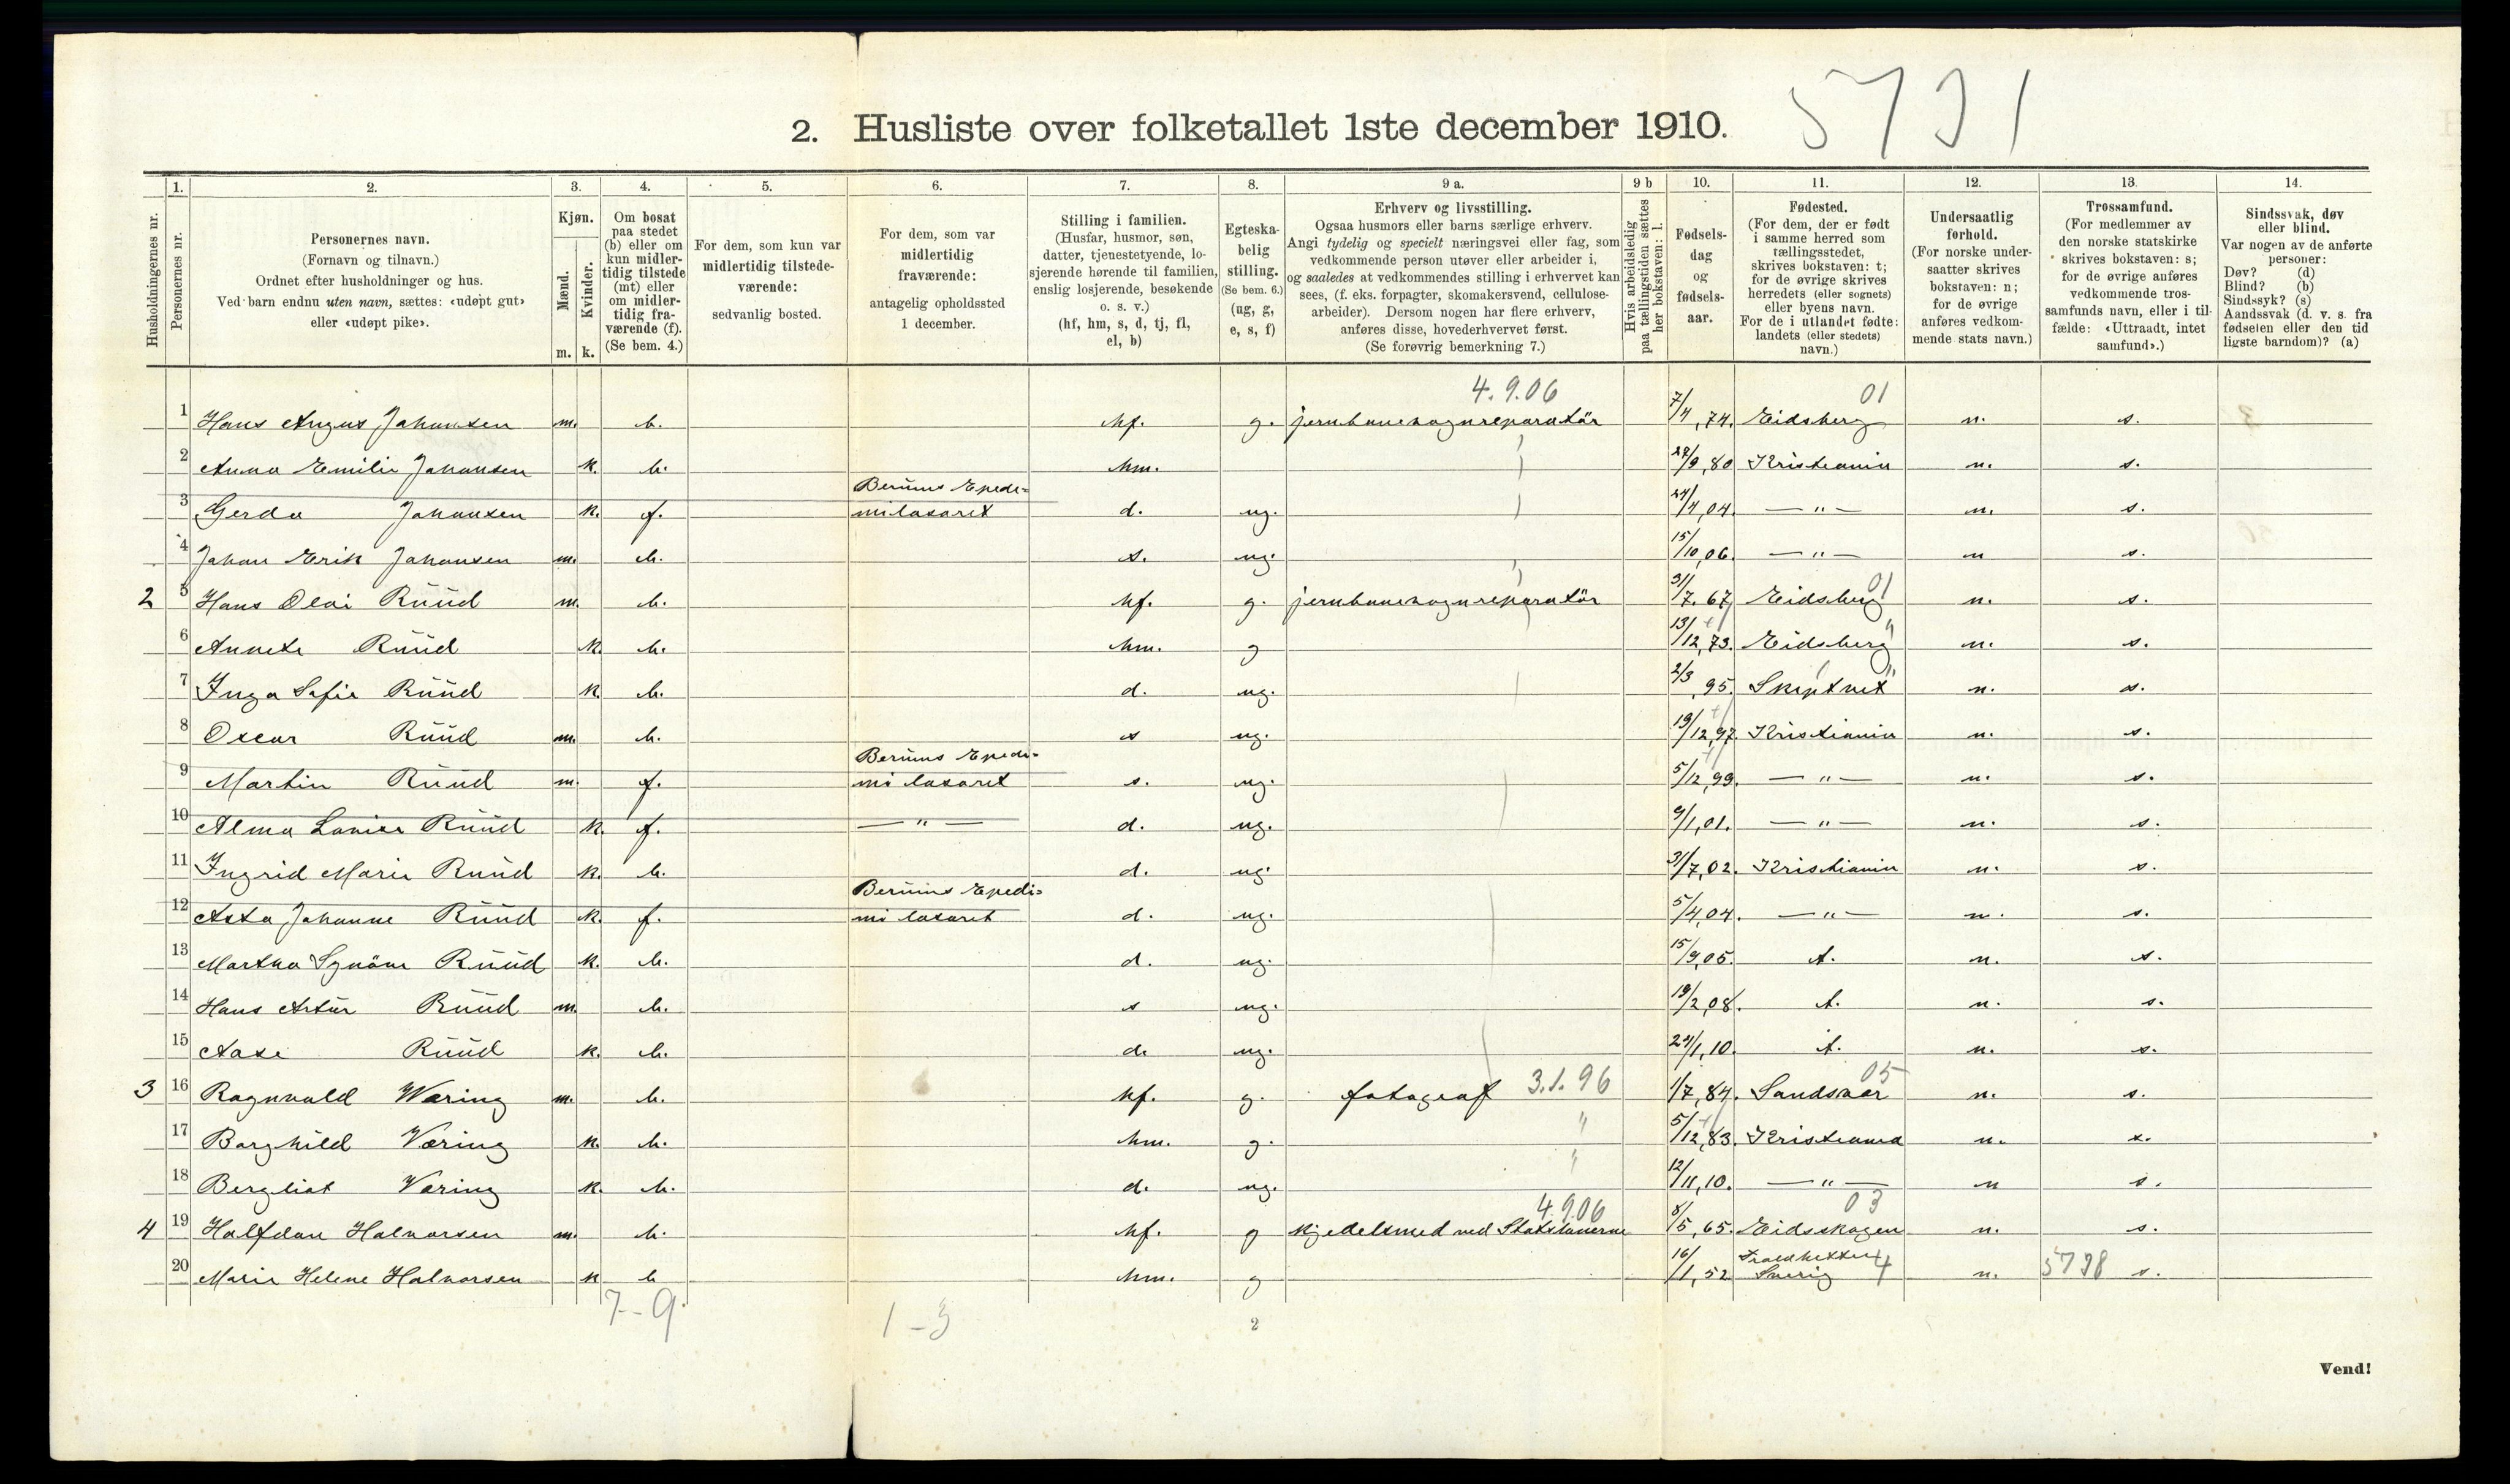 5731
2. Husliste over folketallet 1ste december 1910.
Husholdningernes nr.
1. Personernes nr.
2. Personernes navn.
(Fornavn og tilnavn.)
Ordnet efter husholdninger og hus.
Ved barn endnu uten navn, sættes: «udøpt gut»
eller «udøpt pike».
3. Kjøn.
Mænd. Kvinder.
m. k.
4. Om bosat
paa stedet
(b) eller om
kun midler-
tidig tilstede
(mt) eller
om midler-
tidig fra-
værende (f).
(Se bem. 4.)
5. For dem, som kun var
midlertidig tilstede-
værende:
sedvanlig bosted.
6. For dem, som var
midlertidig
fraværende:
antagelig opholdssted
1 december.
7. Stilling i familien.
(Husfar, husmor, søn,
datter, tjenestetyende, lo-
sjerende hørende til familien,
enslig losjerende, besøkende
o. s. v.)
(hf, hm, s, d, tj, fl,
el, b)
8. Egteska-
belig
stilling.
(Se bem. 6.)
(ug, g,
e, s, f)
9 a. Erhverv og livsstilling.
Ogsaa husmors eller barns særlige erhverv.
Angi tydelig og specielt næringsvei eller fag, som
vedkommende person utøver eller arbeider i,
og saaledes at vedkommendes stilling i erhvervet kan
sees, (f. eks. forpagter, skomakersvend, cellulose-
arbeider). Dersom nogen har flere erhverv,
anføres disse, hovederhvervet først.
(Se forøvrig bemerkning 7.)
9 b Hvis arbeidsledig
paa tællingstiden sættes
her bokstaven: l.
10. Fødsels-
dag
og
fødsels-
aar.
11. Fødested.
(For dem, der er født
i samme herred som
tællingsstedet,
skrives bokstaven: t;
for de øvrige skrives
herredets (eller sognets)
eller byens navn.
For de i utlandet fødte:
landets (eller stedets)
navn.)
12. Undersaatlig
forhold.
(For norske under-
saatter skrives
bokstaven: n;
for de øvrige
anføres vedkom-
mende stats navn.)
13. Trossamfund.
(For medlemmer av
den norske statskirke
skrives bokstaven: s;
for de øvrige anføres
vedkommende tros-
samfunds navn, eller i til-
fælde: «Uttraadt, intet
samfund».)
14. Sindssvak, døv
eller blind.
Var nogen av de anførte
personer:
Døv? (d)
Blind? (b)
Sindssyk? (s)
Aandssvak (d. v. s. fra
fødselen eller den tid
ligste barndom)? (a)
4.9.06 01
1 Hans Angus Johansen m. b. hf. g. jernbanevognreparatör 7/4, 74. Eidsberg n. s.
2 Anna Emilie Johansen k. b. hm. /9, 80 Kristiania n. s.
Berums Epede=
3 Gerda Johansen k. f. milasaret d. ug. 24/4, 04. — " — n. s.
4 Johan Erik Johansen m. b. s. ug. 15/10, 06. — " — n s.
01
2 5 Hans Olai Ruud m. b. hf. g. jernbanevognreparatör 31/7. 67. Eidsberg n. s.
6 Annete Ruud k. b. hm. g 13/12, 73. Eidsberg n. s.
7 Inga Sofie Ruud k. b. d. ug. 2/3, 95. Skiptvet n. s.
8 Oscar Ruud m. b. s ug. 19/12, 97. Kristiania n. s.
Berums Epede=
9 Martin Ruud m. f. mi lasaret s. ug. 5/12, 99. — " — n. s.
10 Alma Lovise Ruud k. f. — " — d. ug. 9/1, 01. — " — n. s.
11 Ingrid Marie Ruud k. b. d. ug. 31/7, 02. Kristiania n. s.
Berums Epedi=
12 Asta Johanne Ruud k. f. mi lasaret d. ug. 5/4, 04. — " — n. s.
13 Martha Ruud k. b. d. ug. 15/9, 05. t. n. s.
14 Hans Artur Ruud m. b. s ug. 19/2, 08. t. n. s.
15 Aase Ruud k. b. d. ug. /1, 10. t. n. s.
3.1.96 05
3 16 Ragnvald Wæring m. b. hf. g. fotograf 1/7, 84. Sandsvær n. s.
17 Borghild Væring k. b. hm. g. " 5/12, 83. Kristiania n. s.
18 Bergliot Væring k. b. d. ug. " 12/11, 10. — " — n s.
4.9.06 03
4 19 Halfdan Halvorsen m. b. hf. g kjedelsmed ved Statsbanerne 8/5, 65. Eidskogen n. s.
20 Marie Helene Halvorsen k b hm. g 16/1, 52 Sverig n. 5738 s.
7-9 1-3
2
Vend!